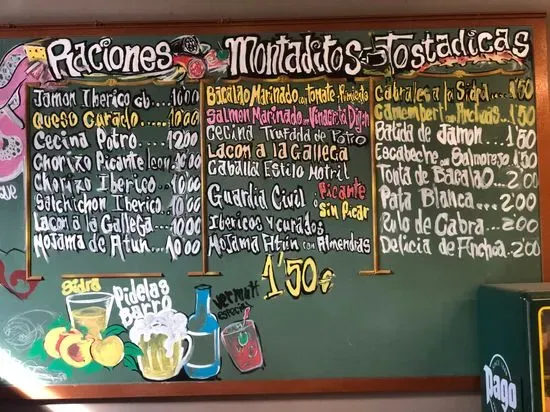 Raciones
Jamon Iberico cb 16'00
Queso Curado 10'00
Cecina Potro 12'00
Chorizo Picante Leon 10'00
Chorizo Iberico 10'00
Salchichon Iberico 10'00
Lacon a la Gallega 10'00
Mojama de Atun 10'00
Montaditos
Bacalao Marinado con Tomate Pimienta
Salmon Marinado con Vinagreta Dijon
Cecina Trufada de Potro
Lacon a la Gallega
Caballa Estilo Motril
Guardia Civil Picante
o Sin Picar
Ibericos y curados
Mojama Atun con Almendras
1'50 €
Tostadicas
Cabrales a la Sidra 1'50
Camembert con Anchoas 1'50
Batida de Jamon 1'50
Escabeche con Salmorejo 1'50
Tonta de Bacalao 2'00
Pata Blanca 2'00
Rulo de Cabra 2'00
Delicia de Anchoa 2'00
Sidra
Pidelas
Barro
Vermutt
Especial
pago